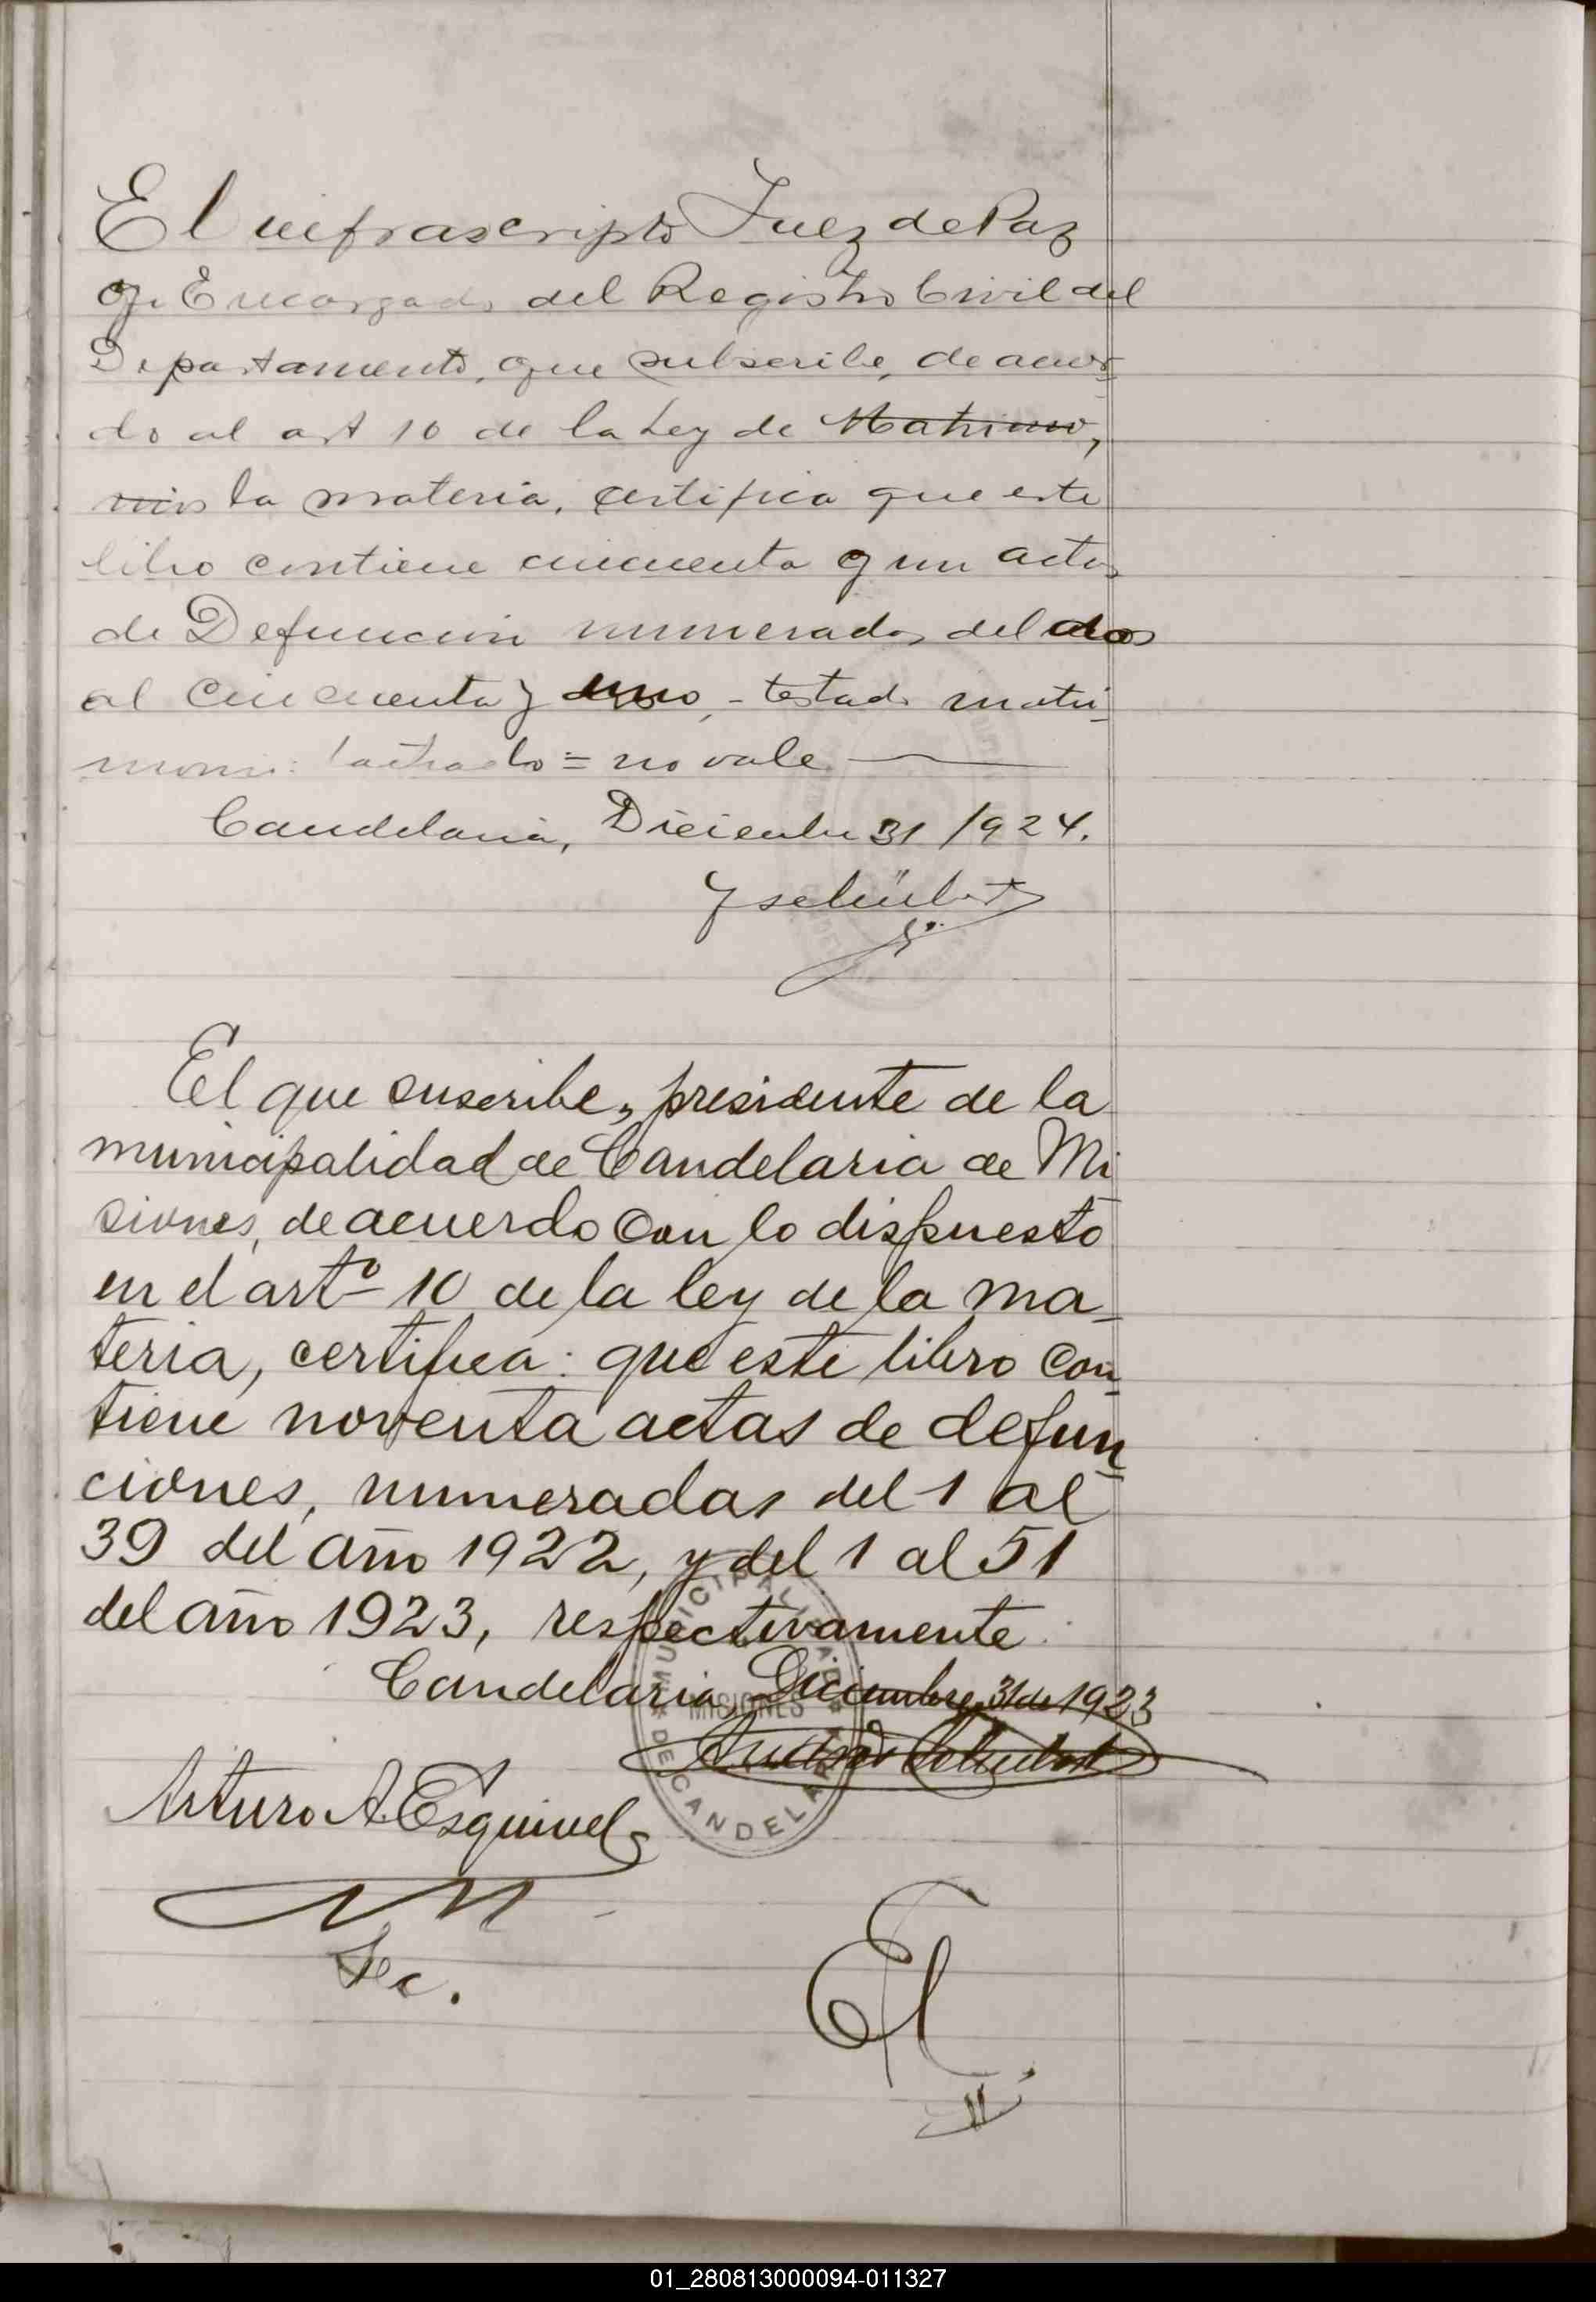 El infrascripto Juez de Paz
y Encargado del Registro Civil del
Departamento, que subscribe, de acuer-
do al art 10 de la Ley de Matrimo,
nio la materia, certifica que este
libro contiene cincuenta y un actas
de Defuncion numerados del dos
al cincuenta y uno, - testado matri-
moni: tachado = no vale
Candelaria, Diciembre 31/924.
El que suscribe, presidente de la
municipalidad de Candelaria de Mi
siones, de acuerdo con lo dispuesto
en el artº 10 de la ley de la ma-
teria, certifica: que este libro con-
tiene noventa actas de defun-
ciones, numeradas del 1 al
39 del año 1922, y del 1 al 51
del año 1923, respectivamente.
Candelaria Diciembre 31 de 1923
MUNICIPALIDAD DE CANDELARIA
MISIONES
Arturo A. Esquivel
Sec.
El
01_280813000094-011327